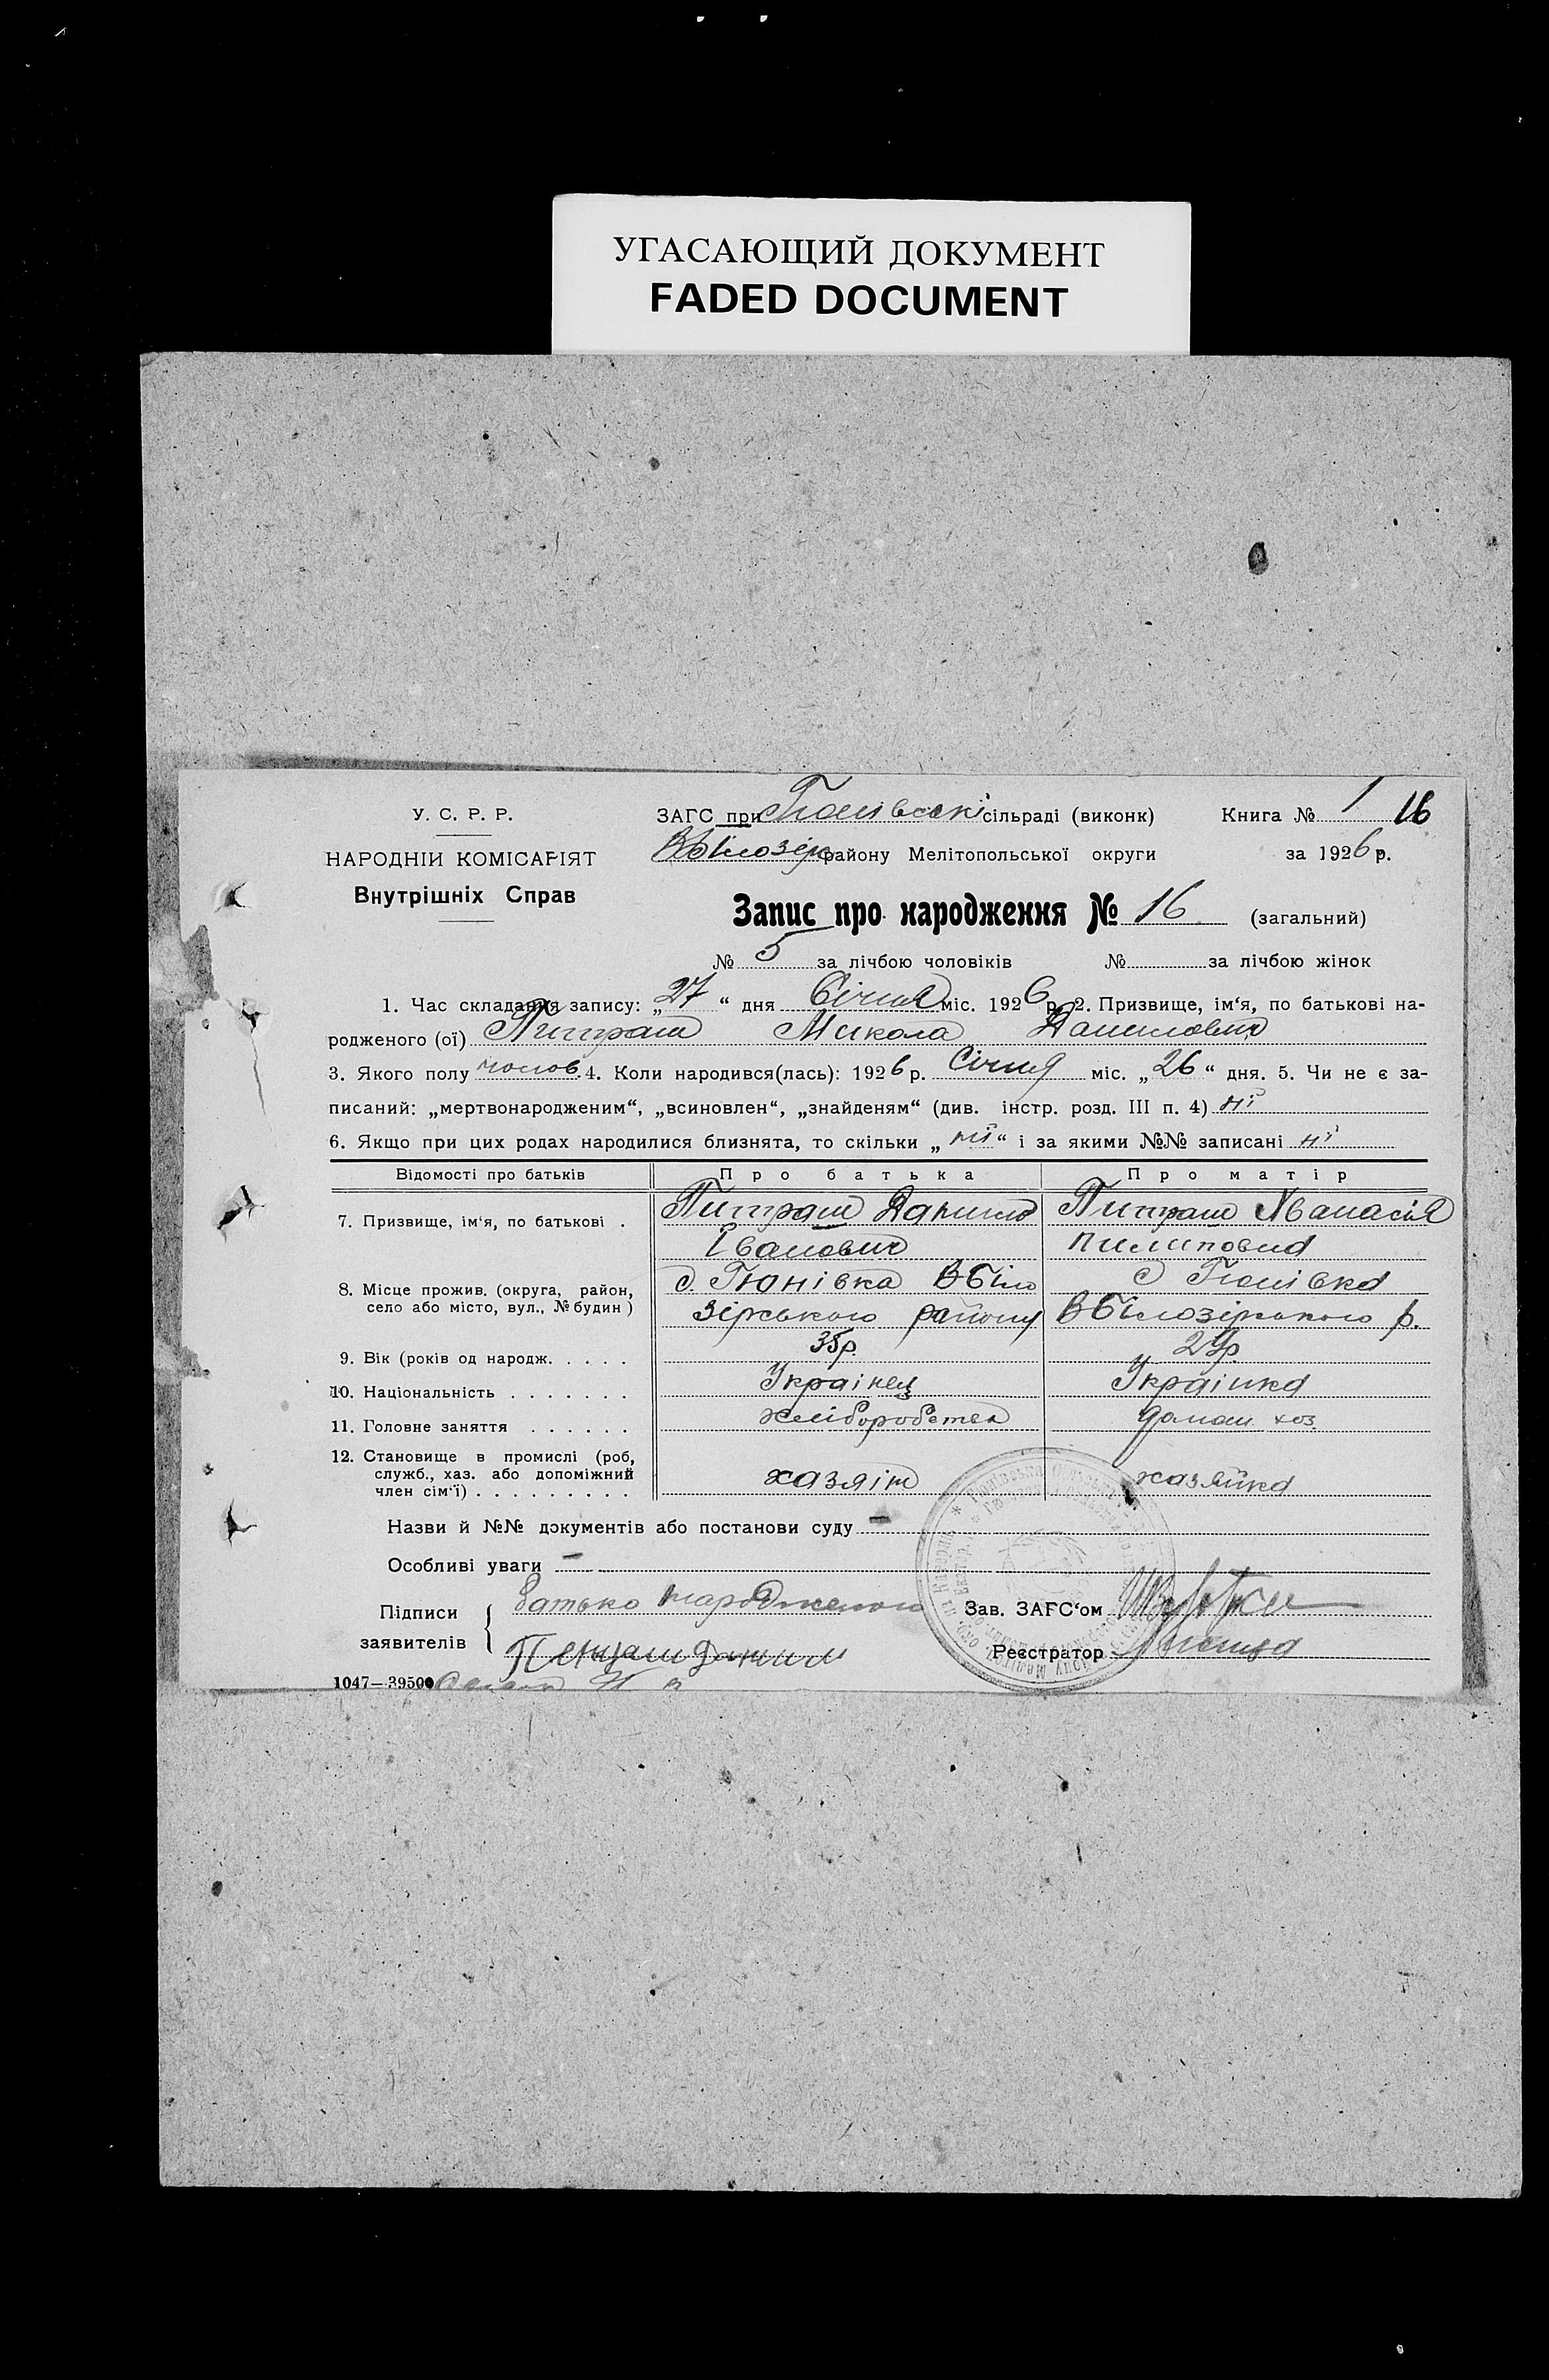 УГАСАЮЩИЙ ДОКУМЕНТ
FADED DOCUMENT
У. С. Р. Р.
НАРОДНІЙ КОМІСАРІЯТ
Внутрішніх Справ
ЗАГС при Гюнівській сільраді (виконк) Книга № 1 16
ВБілозір району Мелітопольської округи за 1926 р.
Запис про народження № 16 (загальний)
№ 5 за лічбою чоловіків № за лічбою жінок
1. Час складання запису: „27“ дня Січня міс. 1926 р. 2. Призвище, ім‘я, по батькові на-
родженого (ої) Питраш Микола Данилович
3. Якого полу чолов. 4. Коли народився(лась): 1926 р. Січня міс. „26“ дня. 5. Чи не є за-
писаний: „мертвонародженим“, „всиновлен“, „знайденям“ (див. інстр. розд. III п. 4) ні
6. Якщо при цих родах народилися близнята, то скільки „ні“ і за якими №№ записані ні
Відомості про батьків Про батька Про матір
7. Призвище, ім‘я, по батькові . Питраш Данило Питраш Хванасія
Іванович пилиповна
8. Місце прожив. (округа, район, село або місто, вул., № будин) д. Гюнівка ВБіло д Гюнівка
зірського району ВБілозірського р.
9. Вік (років од народж. . . . . 35р. 29р.
10. Національність . . . . . . . Українец Українка
11. Головне заняття . . . . . . хліборобства домаш. хоз.
12. Становище в промислі (роб,
служб., хаз. або допоміжний
член сім‘ї) . . . . . . . . . хазяін хазяйка
Назви й №№ документів або постанови суду —
Особливі уваги —
Підписи заявителів батько народженого
Зав. ЗАГС‘ом
Питраш Данило
Реєстратор
1047—39500